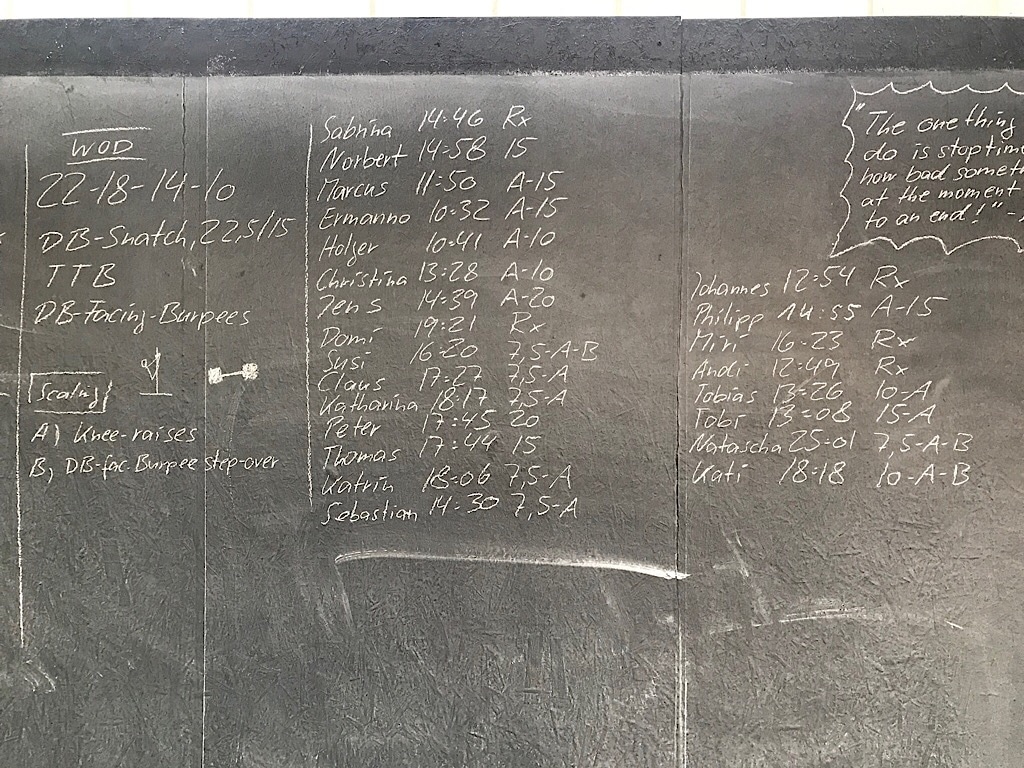 WOD
22-18-14-10
DB-Snatch, 22,5/15
TTB
DB-Facing-Burpees
Scaling
A) Knee-raises
B) DB-fac. Burpee step-over
Sabrina 14:46 Rx
Norbert 14:58 15
Marcus 11:50 A-15
Ermanno 10:32 A-15
Holger 10:41 A-10
Christina 13:28 A-10
Jens 14:39 A-20
Domi 19:21 Rx
Susi 16:20 7,5-A-B
Claus 17:27 7,5-A
Katharina 18:17 7,5-A
Peter 17:45 20
Thomas 17:44 15
Katrin 18:06 7,5-A
Sebastian 14:30 7,5-A
"The one thing
do is stop time
how bad somet
at the moment
to an end!" -
Johannes 12:54 Rx
Philipp 14:55 A-15
Miri 16:23 Rx
Andi 12:49 Rx
Tobias 13:26 10-A
Tobi 13:08 15-A
Natascha 25:01 7,5-A-B
Kati 18:18 10-A-B